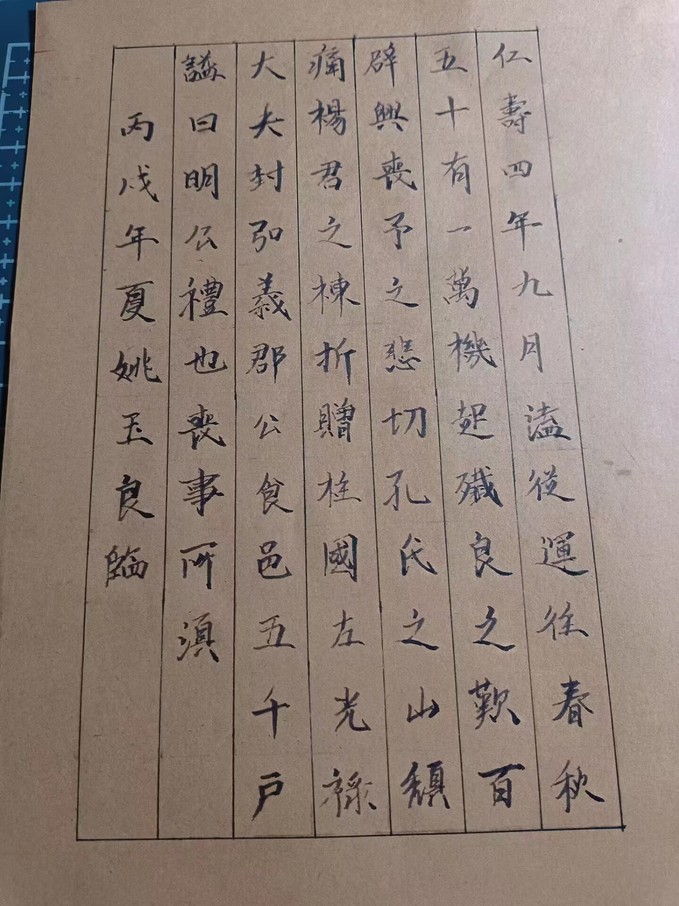 仁壽四年九月溘從運往春秋
五十有一萬機起殲良之歎百
辟興喪予之悲切孔氏之山頹
痛楊君之棟折贈柱國左光祿
大夫封弘義郡公食邑五千戶
謚曰明公禮也喪事所須
丙戌年夏姚玉良臨